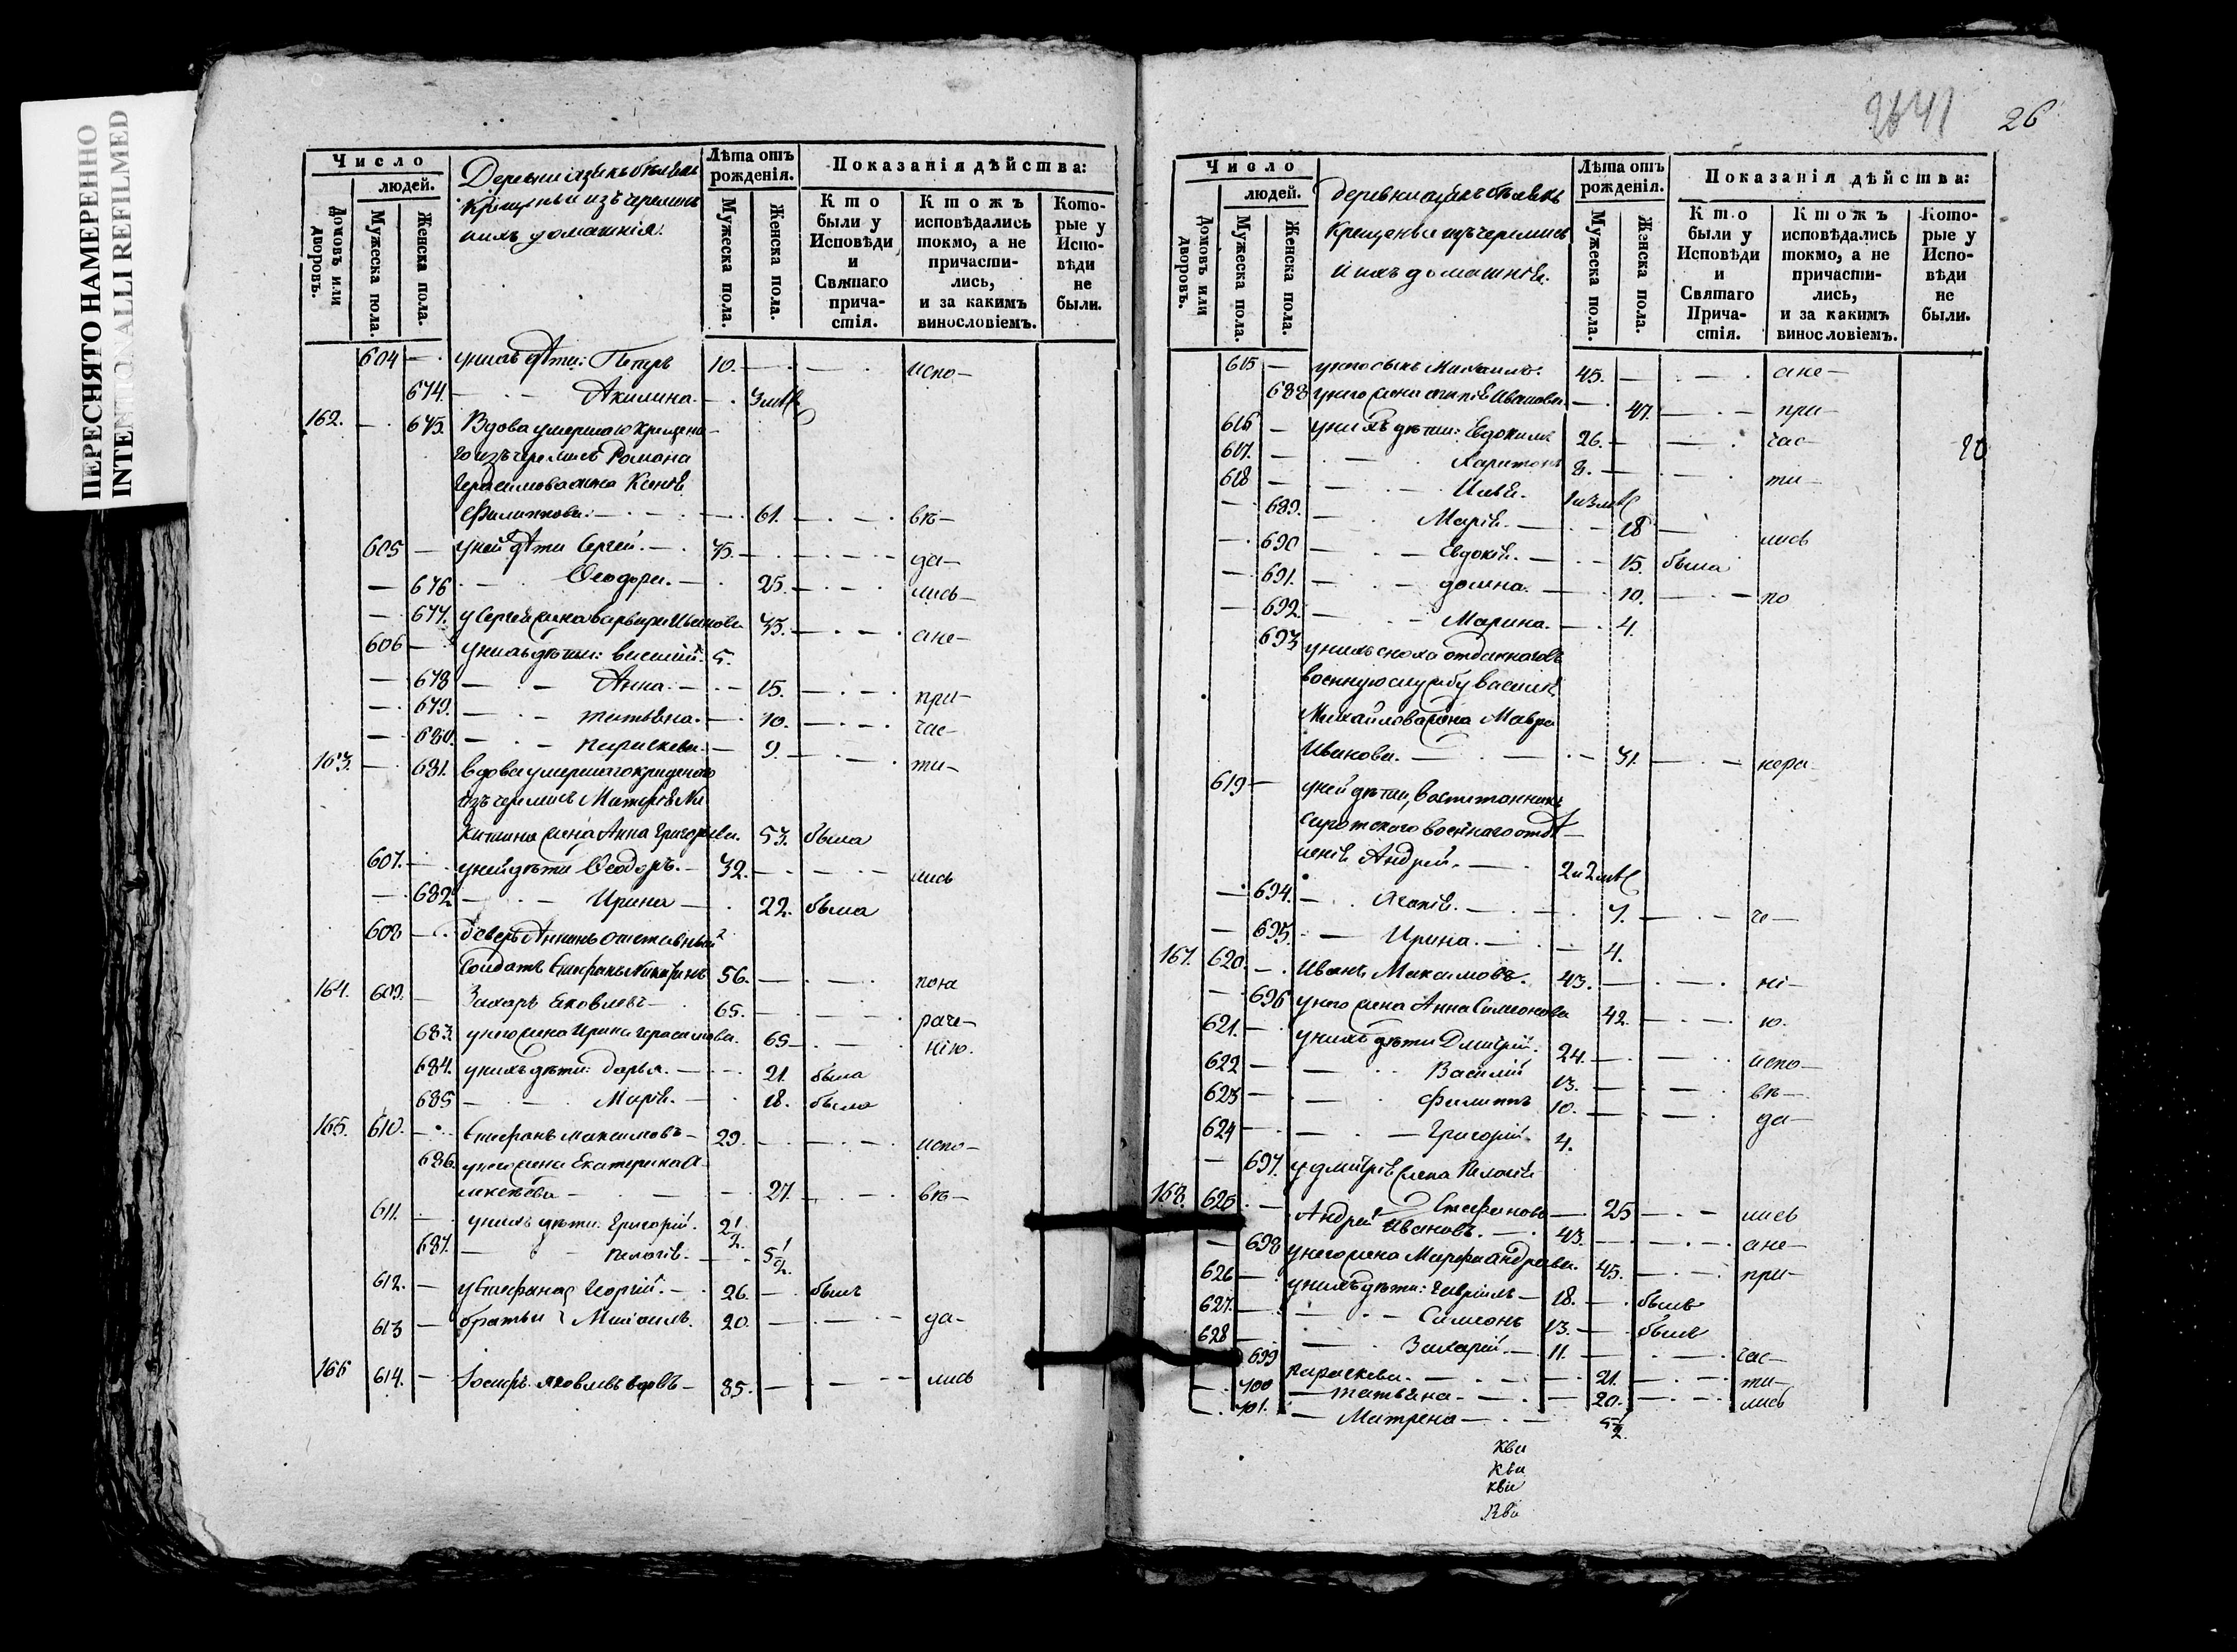 ПЕРЕСНЯТО НАМЕРЕННО
INTENTIONALLY REFILMED
Число
людей.
Домовъ или дворовъ.
Мужеска пола.
Женска пола.
Деревни
крещеныи изъ черемисъ
ихъ домашнiя.
Лѣта отъ рожденiя.
Мужеска пола.
Женска пола.
Показанiя дѣйства:
Кто были у Исповѣди и Святаго причастiя.
Ктожъ исповѣдались токмо, а не причастились, и за какимъ винословiемъ.
Которые у Исповѣди не были.
604 — у нихъ дѣти: Петръ 10. — испо—
674. — Акилина. — 3 мѣ
162. — 675. Вдова умершаго крещена
го изъ черемисъ Романа
Герасимова жена Ксенiѣ
Филиппова. — 61. — вѣ—
605 — у ней дѣти Сергей. — 35. — да—
— 676 — Ѳеодора. — 25. — лись—
— 677. у Сергея жена Варвара Иванова 35. — ане—
606 — у нихъ дѣти: Василiй. 5.
— 678 — Анна. — 15. — при—
— 679. — Татьяна. — 10. — час—
— 680. — Параскева. — 9. — ти—
163. — 681. вдова умершаго крещенаго
изъ черемисъ Матвѣя Ни
китина жена Анна Григорьева. 53. была
607. — у ней дѣти Ѳеодоръ. — 32. — лись
— 682 — Ирина — 22. была
608 — деверь Аннинъ отставный
солдатъ Стефанъ Никитинъ 56. — пона
164. 609. — Захаръ Яковлевъ — 65. — раче—
683. у него жена Ирина Герасимова. 65 — нiю.
684. у нихъ дѣти: Дарья. — 21. была
685 — Марiѣ. — 18. была
165. 610. — Стефанъ Максимовъ — 29. — испо—
686. у него жена Екатерина А
лексѣева — 27. — вѣ—
611. — у нихъ дѣти: Григорiй. 2 1/2.
687. — Пелагiѣ. — 5 1/2.
612. — у Стефана Георгiй. — 26. — былъ
613 — братьи Михаилъ. 20. — да—
166 614. — Iосифъ Яковлевъ вдовъ — 85. — лись
2641
26
Число
людей.
Домовъ или дворовъ.
Мужеска пола.
Женска пола.
деревни
Крещеныи изъ черемисъ
и ихъ домашнiѣ.
Лѣта отъ рожденiя.
Мужеска пола.
Женска пола.
Показанiя дѣйства:
Кто были у Исповѣди и Святаго Причастiя.
Ктожъ исповѣдались токмо, а не причастились, и за какимъ винословiемъ.
Которые у Исповѣди не были.
615 — у него сынъ Михаилъ. 45. — ане—
688 у него жена Иванова — 47. — при—
616 — у нихъ дѣти: Евдокимъ 26. — час—
617. — Харитонъ 8. — ти—
618 — Илья. 1 и 3 мѣ
— 689. — Марiѣ. — 18 — лись
— 690 — Евдокiѣ. — 15. была
— 691. — Домна. — 10. — по
— 692. — Марина. — 4.
693 у нихъ сноха отданнаго въ
военную службу Василiя
Михайлова жена Мавра
Иванова. — 31. — нера—
619 — у ней дѣти, воспитанникъ
сиротскаго военнаго отдѣ—
ленiѣ Андрей. — 2 и 2 мѣ
— 694. — 7. — че—
— 695. — Ирина. — 4.
167. 620. — Иванъ Максимовъ. 43. — нi—
— 696 у него жена Анна Симонова 42. — ю.
621. — у нихъ дѣти Дмитрiй. 24. — испо—
622 — Василiй 13. — вѣ—
623 — Филиппъ 10. — да—
624 — Григорiй. 4.
— 697. у Дмитрiѣ жена Пелагiѣ
Стефанова — 25 — лись
168. 625. — Андрей Ивановъ. — 43. — ане—
— 698 у него жена Марфа Андреева. 45. — при—
626 — у нихъ дѣти: Гаврiилъ — 18. — былъ
627. — Симеонъ 13. — былъ
628 — Захарiй. — 11. — час—
699 Параскева. — 21. — ти—
— 700 — Татьяна. — 20. — лись
701. — Матрена — 5 1/2.